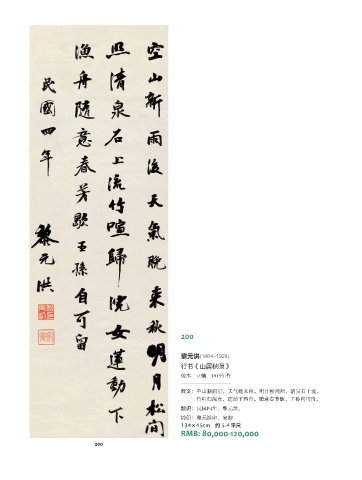 空山新雨後天氣晚來秋明月松間
照清泉石上流竹喧歸浣女蓮動下
漁舟隨意春芳歇王孫自可留
民國四年 黎元洪
200
200
黎元洪(1864-1928)
行书《山居秋暝》
纸本 立轴 1915年作
释文:空山新雨后,天气晚来秋。明月松间照,清泉石上流。
竹喧归浣女,莲动下渔舟。随意春芳歇,王孙自可留。
题识:民国四年,黎元洪。
134×45cm 约 5.4 平尺
RMB: 80,000-120,000